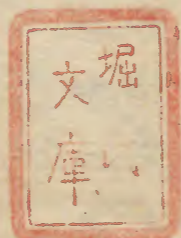 堀
文庫